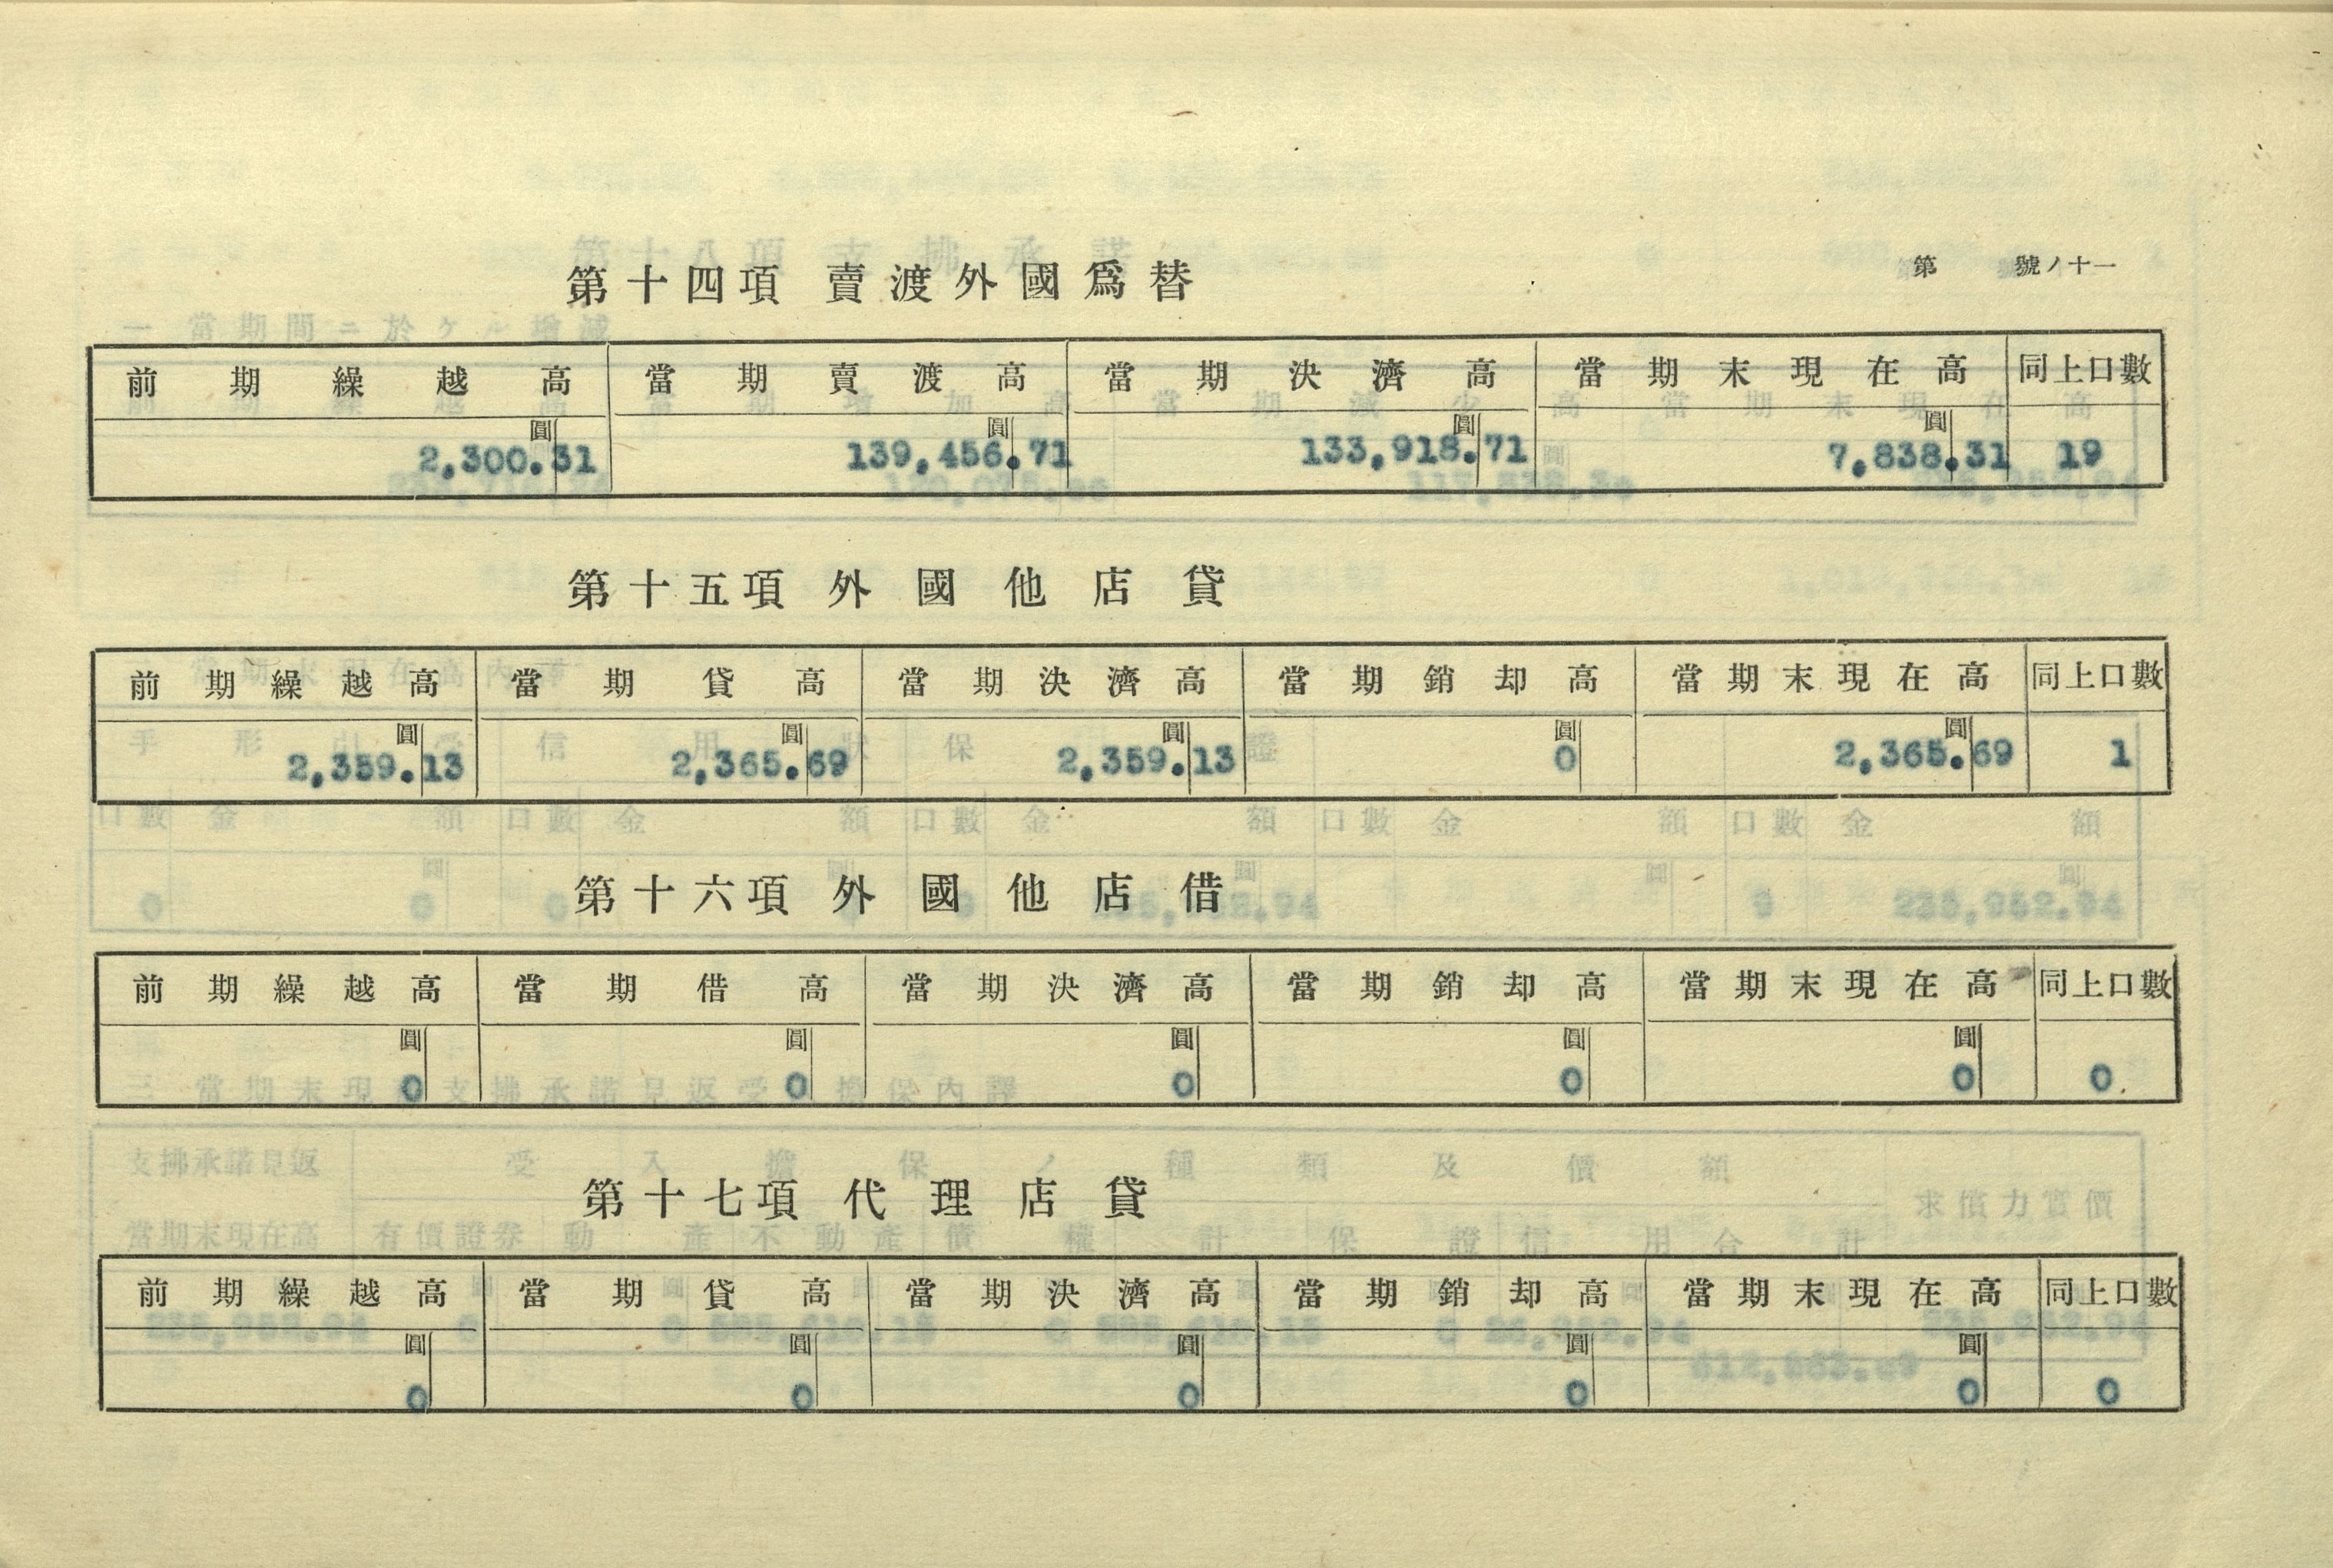 第十四項 賣渡外國爲替
第 號ノ十一
前期繰越高 當期賣渡高 當期決濟高 當期末現在高 同上口數
圓 圓 圓 圓
2,300.31 139,456.71 133,918.71 7,838.31 19
第十五項 外國他店貸
前期繰越高 當期貸高 當期決濟高 當期銷却高 當期末現在高 同上口數
圓 圓 圓 圓 圓
2,359.13 2,365.69 2,359.13 0 2,365.69 1
第十六項 外國他店借
前期繰越高 當期借高 當期決濟高 當期銷却高 當期末現在高 同上口數
圓 圓 圓 圓 圓
0 0 0 0 0 0
第十七項 代理店貸
前期繰越高 當期貸高 當期決濟高 當期銷却高 當期末現在高 同上口數
圓 圓 圓 圓 圓
0 0 0 0 0 0